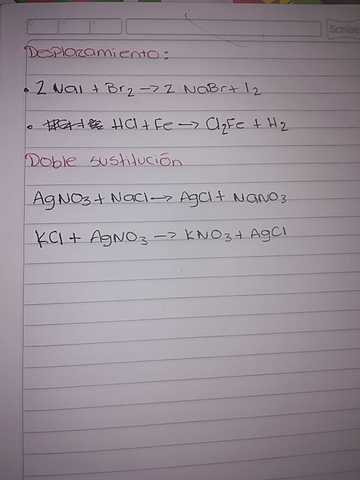 Desplazamiento:
• 2 NaI + Br2 → 2 NaBr + I2
• HCl + Fe → Cl2Fe + H2
Doble sustitución
AgNO3 + NaCl → AgCl + NaNO3
KCl + AgNO3 → KNO3 + AgCl